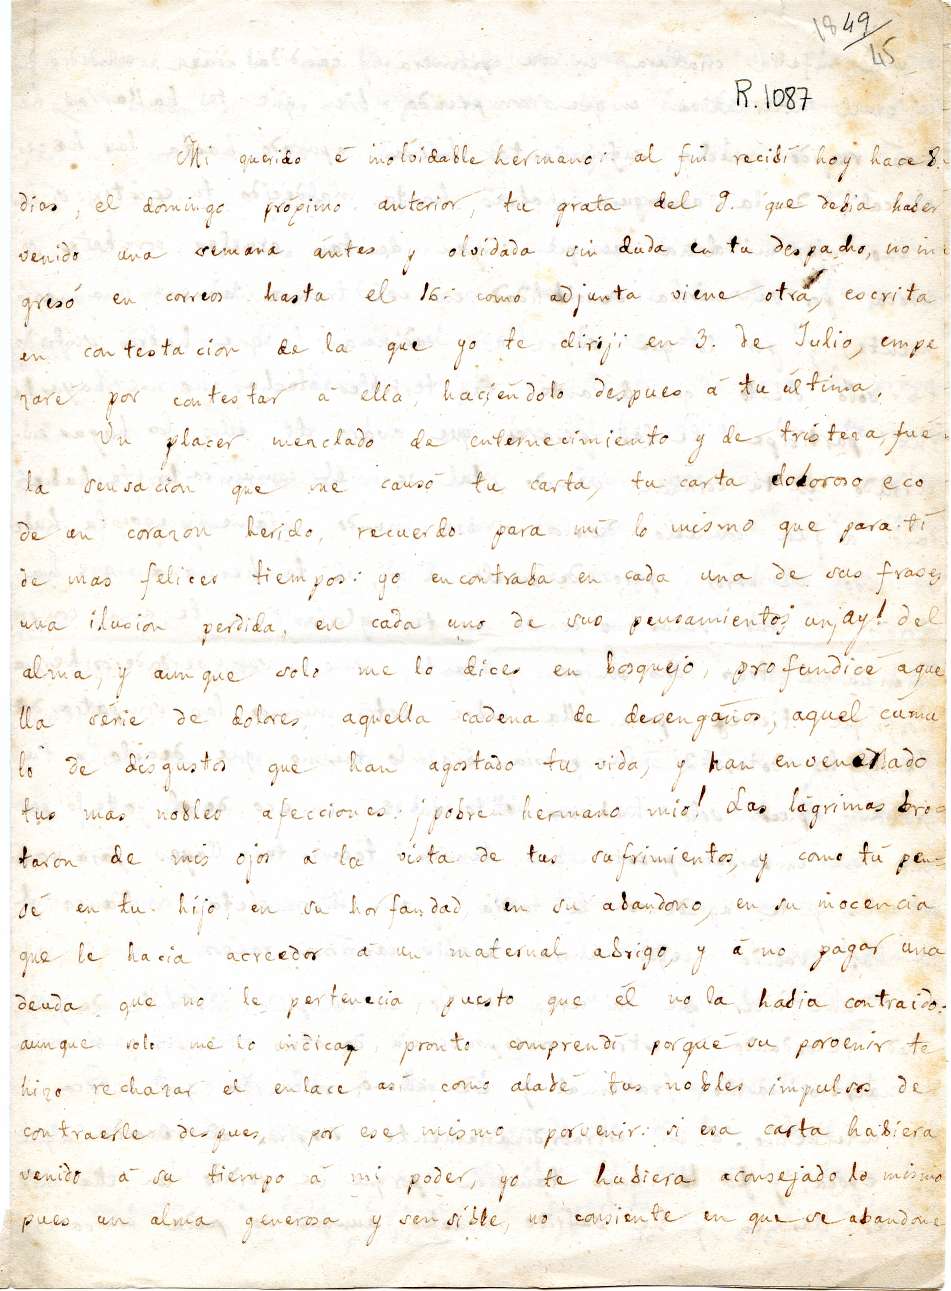 1849/45
R.1087
Mi querido é inolvidable hermano: al fin recibí hoy hace 8.
dias, el domingo próximo anterior, tu grata del 9. que debia haber
venido una semana ántes y olvidada sin duda en tu despacho, no in
gresó en correos hasta el 16: como adjunta viene otra, escrita
en contestacion de la que yo te dirijí en 3. de Julio, empe
zaré por contestar á ella, haciéndolo despues á tu última.
Un placer mezclado de enternecimiento y de tristeza, fue
la sensacion que me causó tu carta, tu carta doloroso eco
de un corazon herido, recuerdo para mí lo mismo que para tí
de mas felices tiempos: yo encontraba en cada una de sus frases
una ilusion perdida, en cada uno de sus pensamientos un ¡ay! del
alma, y aunque solo me lo dices en bosquejo, profundicé aque
lla série de dolores, aquella cadena de desengaños, aquel cúmu
lo de disgustos que han agostado tu vida, y han envenenado
tus mas nobles afecciones: ¡pobre hermano mio! Las lágrimas bro
taron de mis ojos á la vista de tus sufrimientos, y como tú pen-
sé en tu hijo, en su horfandad, en su abandono, en su inocencia
que le hacia acreedor á un maternal abrigo, y á no pagar una
deuda que no le pertenecia, puesto que él no la habia contraido:
aunque solo me lo indicas, pronto comprendí porqué su porvenir te
hizo rechazar el enlace, así como alabé tus nobles impulsos de
contraerle despues, por ese mismo porvenir: si esa carta hubiera
venido á su tiempo á mi poder, yo te hubiera aconsejado lo mismo
pues un alma generosa y sensible, no consiente en que se abandone